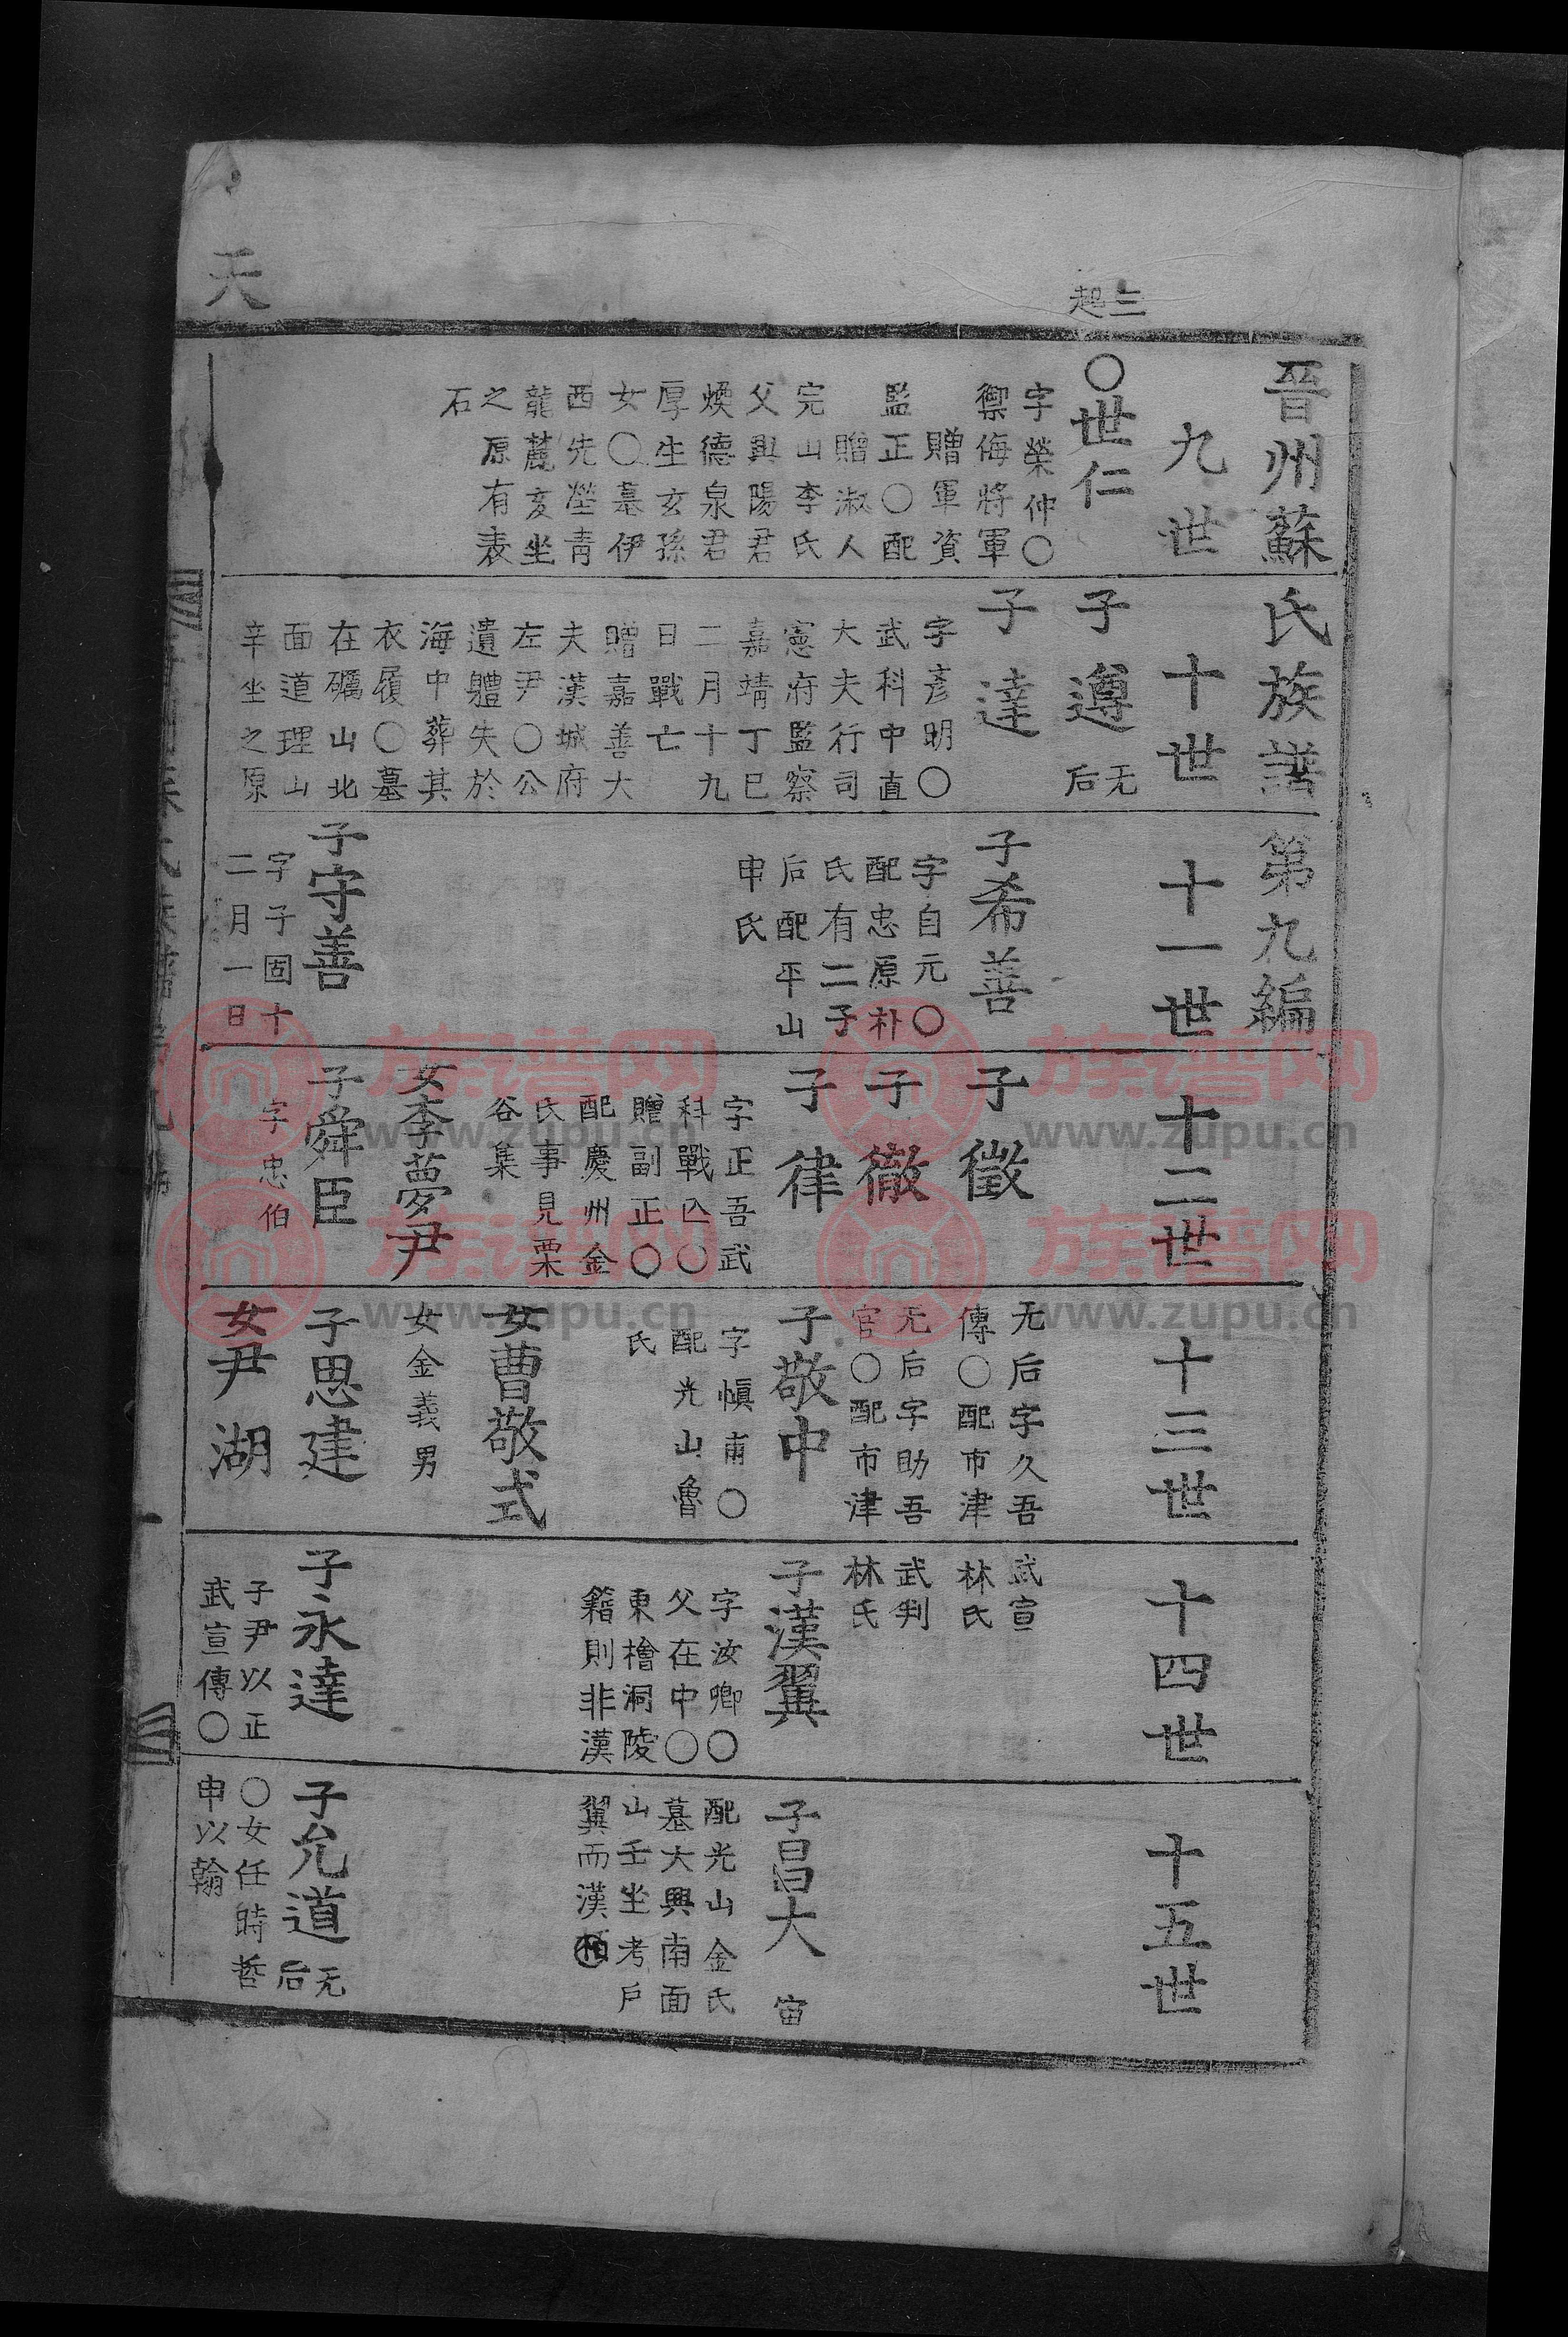 天
三起
晉州蘇氏族譜第九編
九世
○世仁
字榮仲○
禦侮將軍
贈軍資
監正○配
贈淑人
完山李氏
父興陽君
煥德泉君
厚生玄孫
女○墓伊
西先塋青
龍麓亥坐
之原有表
石
十世
子遵
无后
子達
字彥明○
武科中直
大夫行司
憲府監察
嘉靖丁巳
二月十九
日戰亡
贈嘉善大
夫漢城府
左尹○公
遺體失於
海中葬其
衣履○墓
在礪山北
面道理山
辛坐之原
十一世
子希善
字自元○
配忠原朴
氏有二子
后配平山
申氏
子守善
字子固十
二月一日
十二世
子徵
子徹
子律
字正吾武
科戰亾○
贈副正○
配慶州金
氏事見栗
谷集
女李夢尹
子舜臣
字忠伯
十三世
无后字久吾
傳○配市津
无后字助吾
官○配市津
子敬中
字愼甫○
配光山魯
氏
女曹敬式
女金義男
子思建
女尹湖
十四世
武宣
林氏
武判
林氏
子漢翼
字汝卿○
父在中○
東檜洞陵
籍則非漢
子永達
子尹以正
武宣傳○
十五世
子昌大
宙
配光山金氏
墓大興南面
山壬坐考戶
翼而漢栢
子允道
无后
○女任時哲
申以翰
族谱网
www.zupu.cn
族谱网
www.zupu.cn
族谱网
www.zupu.cn
族谱网
www.zupu.cn